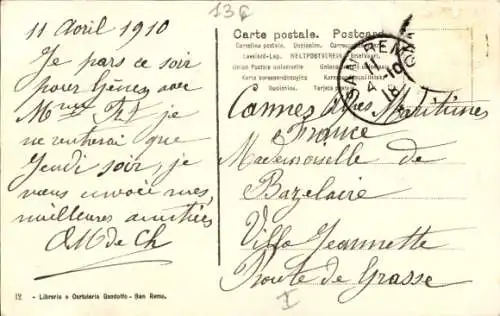 136
11 Avril 1910
Je pars ce soir
pour Gênes avec
Mme je
ne rentrerai que
Jeudi soir, je
vous envoie mes
meilleures amitiés
de Ch
Carte postale. Postcard.
Cartolina postale. Dopisnica.
Levelező-Lap. WELTPOSTVEREIN
Union Postale universelle
Tarjeta postal
SAN REMO
11
4 - 10
18
Cannes Alpes Maritimes
France
Mademoiselle de
Bazelaire
Villa Jeannette
Route de Grasse
I
12 - Libreria e Cartoleria Gandolfo - San Remo.